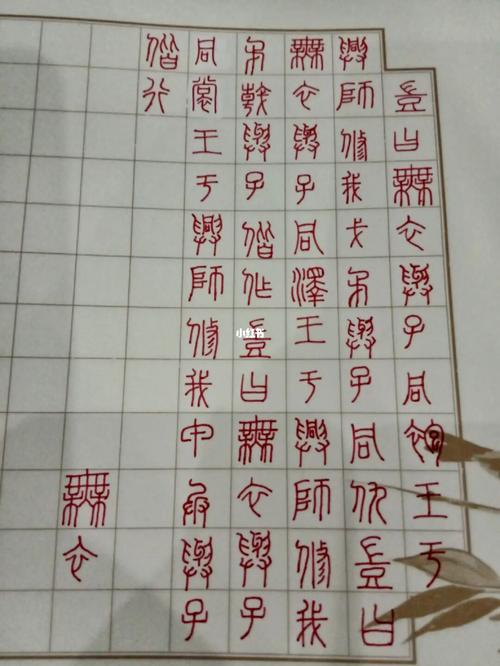 豈曰無衣與子同袍王于
興師修我戈矛與子同仇豈曰
無衣與子同澤王于興師修我
矛戟與子偕作豈曰無衣與子
同裳王于興師修我甲兵與子
偕行
無衣
小红书